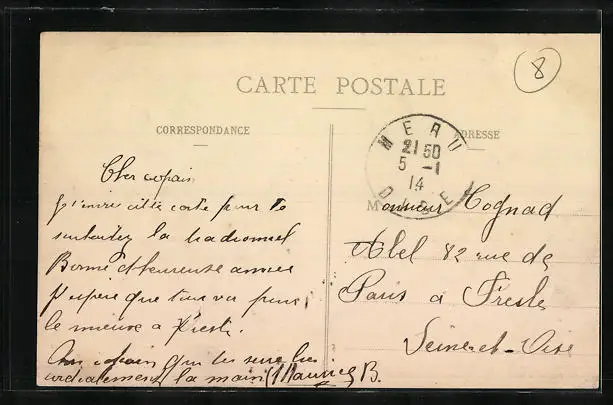 8
CARTE POSTALE
CORRESPONDANCE
ADRESSE
MERU
21 50
5 -1
14
OISE
Cher copain
J'envoie cette carte pour te
souhaiter la
Bonne et heureuse année
J'espère que tout va pour
le mieux a Presles.
Ton copain qui te serre bien
cordialement la main Maurice B.
Monsieur Cognad
Abel 82 rue de
Paris à Presles
Seine-et-Oise